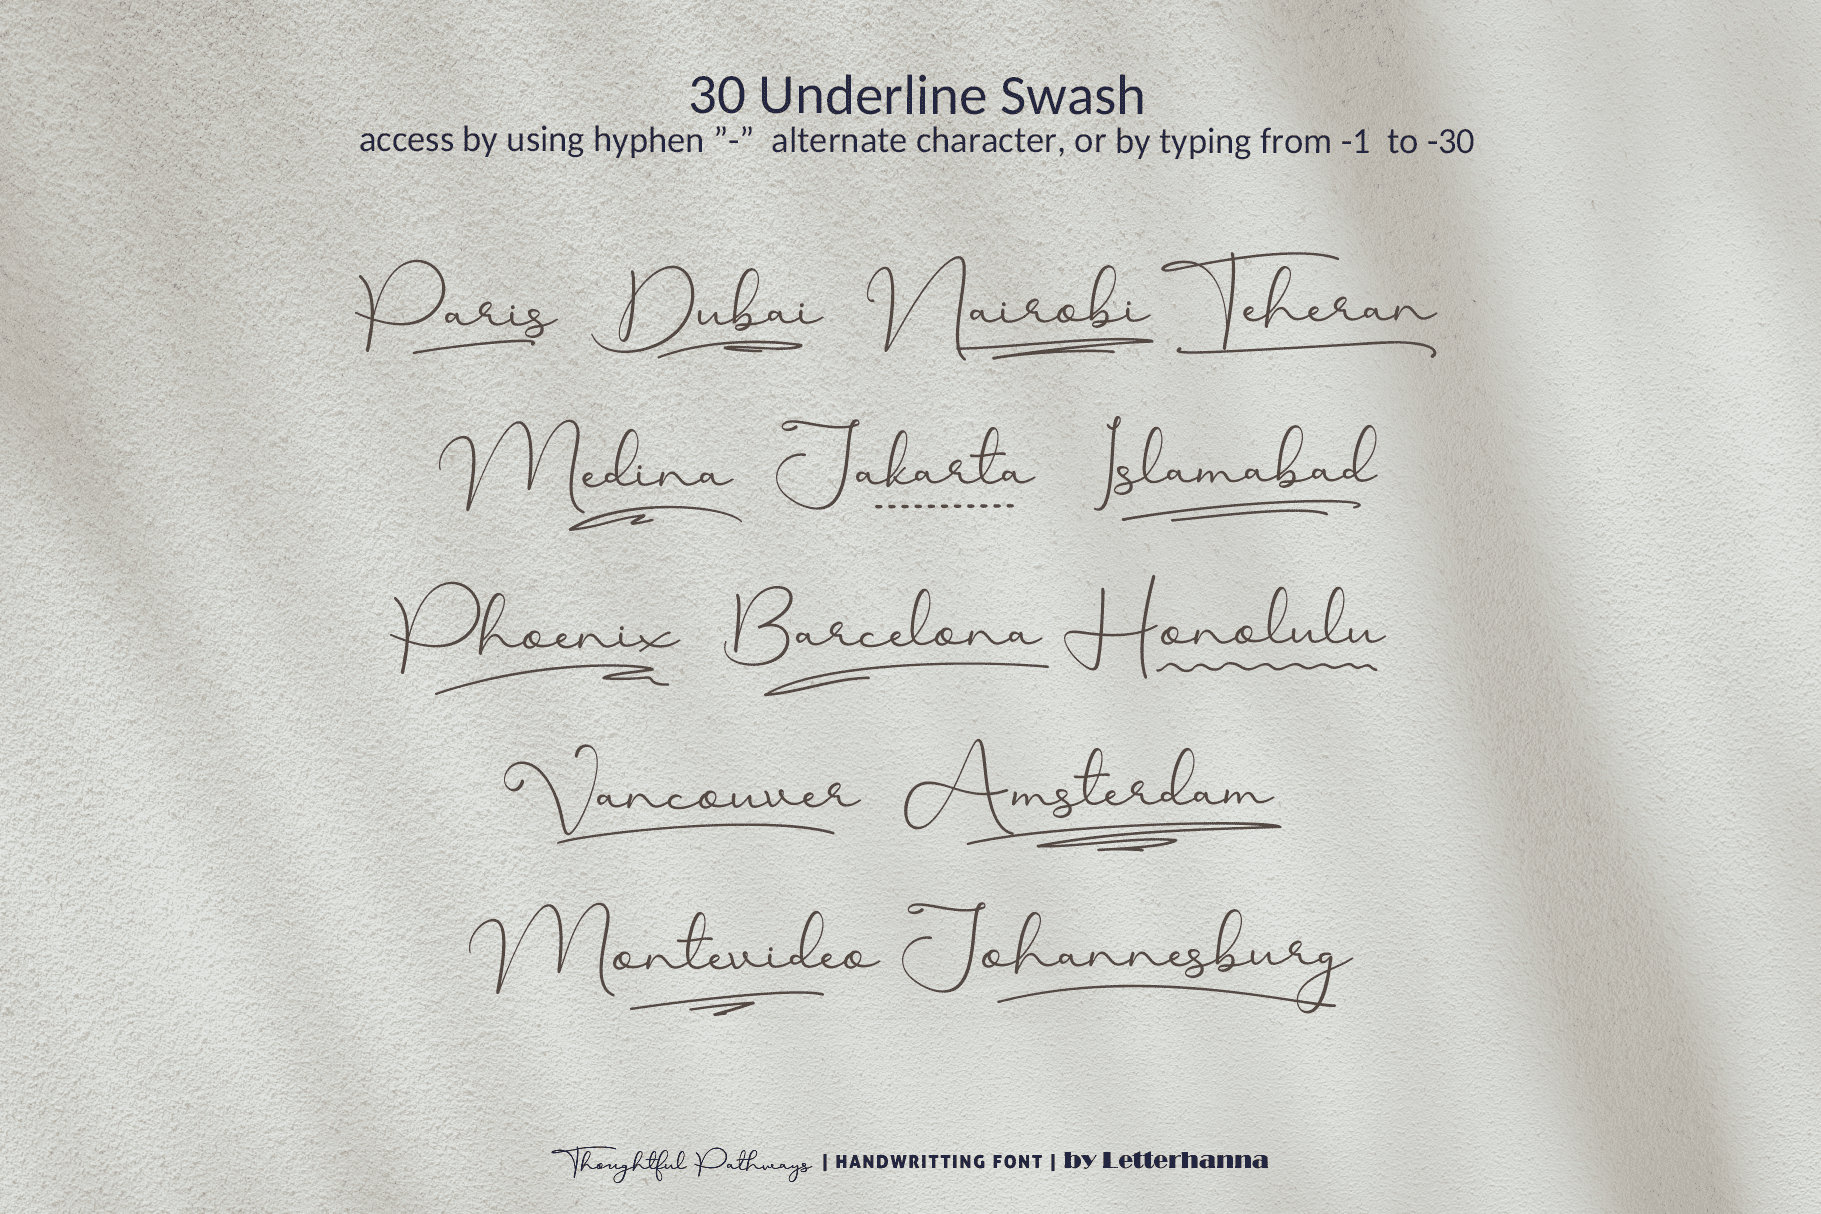 30 Underline Swash
access by using hyphen ”-” alternate character, or by typing from -1 to -30
Paris Dubai Nairobi Teheran
Medina Jakarta Islamabad
Phoenix Barcelona Honolulu
Vancouver Amsterdam
Montevideo Johannesburg
Thoughtful Pathways | HANDWRITTING FONT | by Letterhanna